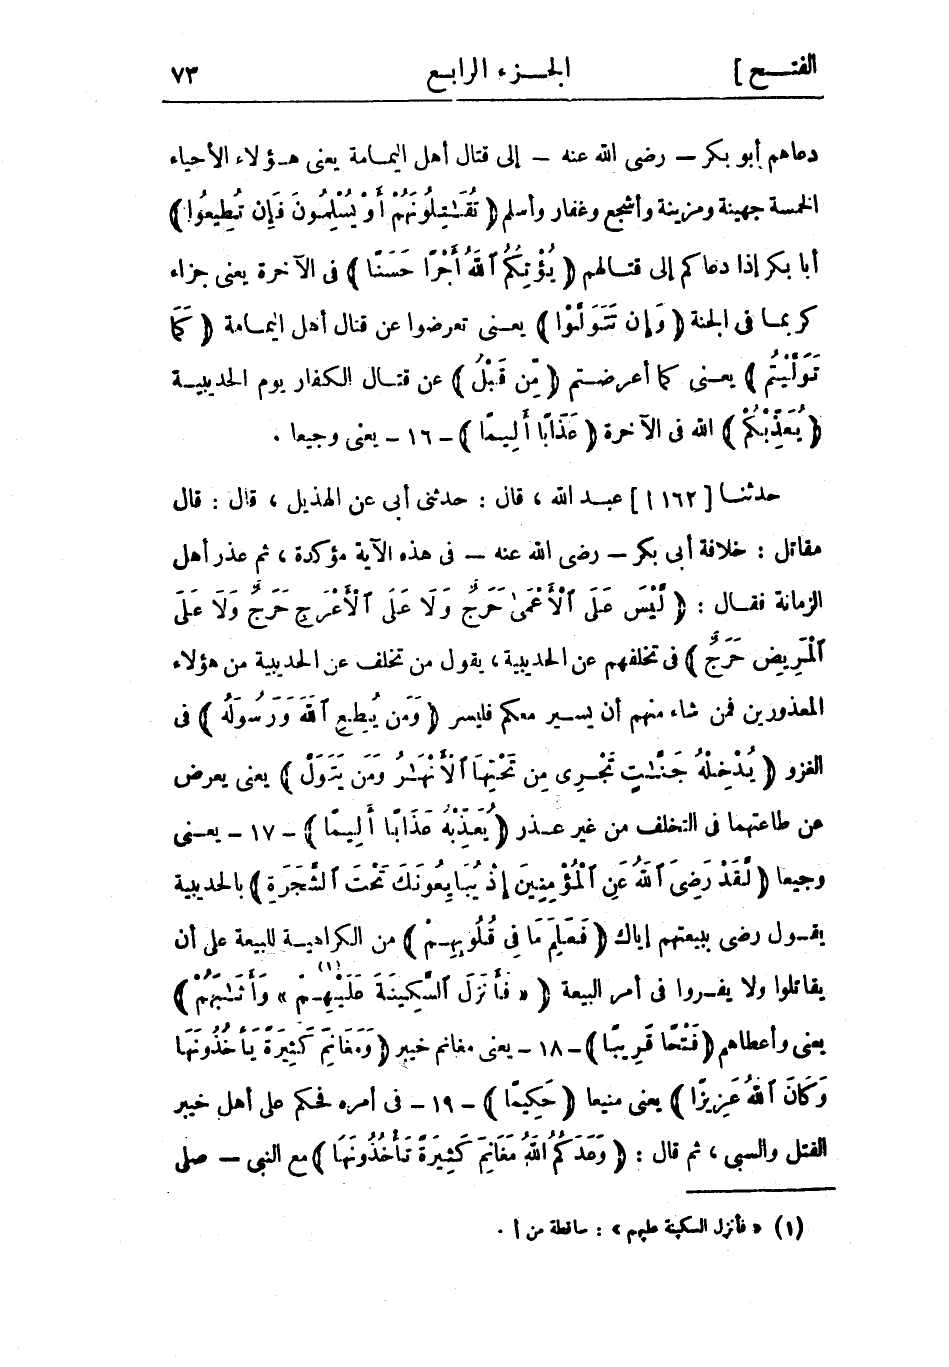 الفتح ] الجزء الرابع ٧٣
دعاهم أبو بكر — رضى الله عنه — إلى قتال أهل اليمامة يعنى هؤلاء الأحياء
الخمسة جهينة ومزينة وأشجع وغفار وأسلم ﴿ تُقَٰتِلُونَهُمْ أَوْ يُسْلِمُونَ فَإِن تُطِيعُوا ﴾
أبا بكر إذا دعاكم إلى قتالهم ﴿ يُؤْتِكُمُ ٱللَّهُ أَجْرًا حَسَنًا ﴾ فى الآخرة يعنى جزاء
كريما فى الجنة ﴿ وَإِن تَتَوَلَّوْا ﴾ يعنى تعرضوا عن قتال أهل اليمامة ﴿ كَمَا
تَوَلَّيْتُم ﴾ يعنى كما أعرضتم ﴿ مِّن قَبْلُ ﴾ عن قتال الكفار يوم الحديبية
﴿ يُعَذِّبْكُمْ ﴾ الله فى الآخرة ﴿ عَذَابًا أَلِيمًا ﴾ – ١٦ – يعنى وجيعا .
حدثنا [ ١٦٢ ا ] عبد الله ، قال : حدثنى أبى عن الهذيل ، قال : قال
مقاتل : خلافة أبى بكر — رضى الله عنه — فى هذه الآية مؤكدة ، ثم عذر أهل
الزمانة فقال : ﴿ لَّيْسَ عَلَى ٱلْأَعْمَىٰ حَرَجٌ وَلَا عَلَى ٱلْأَعْرَجِ حَرَجٌ وَلَا عَلَى
ٱلْمَرِيضِ حَرَجٌ ﴾ فى تخلفهم عن الحديبية ، يقول من تخلف عن الحديبية من هؤلاء
المعذورين فمن شاء منهم أن يسير معكم فليسر ﴿ وَمَن يُطِعِ ٱللَّهَ وَرَسُولَهُ ﴾ فى
الغزو ﴿ يُدْخِلْهُ جَنَّٰتٍ تَجْرِى مِن تَحْتِهَا ٱلْأَنْهَٰرُ وَمَن يَتَوَلَّ ﴾ يعنى يعرض
عن طاعتهما فى التخلف من غير عذر ﴿ يُعَذِّبْهُ عَذَابًا أَلِيمًا ﴾ – ١٧ – يعنى
وجيعا ﴿ لَّقَدْ رَضِىَ ٱللَّهُ عَنِ ٱلْمُؤْمِنِينَ إِذْ يُبَايِعُونَكَ تَحْتَ ٱلشَّجَرَةِ ﴾ بالحديبية
يقول رضى ببيعتهم إياك ﴿ فَعَلِمَ مَا فِى قُلُوبِهِمْ ﴾ من الكراهية للبيعة على أن
يقاتلوا ولا يفروا فى أمر البيعة ﴿ « فَأَنزَلَ ٱلسَّكِينَةَ عَلَيْهِمْ » (١) وَأَثَٰبَهُمْ ﴾
يعنى وأعطاهم ﴿ فَتْحًا قَرِيبًا ﴾ – ١٨ – يعنى مغانم خيبر ﴿ وَمَغَانِمَ كَثِيرَةً يَأْخُذُونَهَا
وَكَانَ ٱللَّهُ عَزِيزًا ﴾ يعنى منيعا ﴿ حَكِيمًا ﴾ – ١٩ – فى أمره فحكم على أهل خيبر
القتل والسبى ، ثم قال : ﴿ وَعَدَكُمُ ٱللَّهُ مَغَانِمَ كَثِيرَةً تَأْخُذُونَهَا ﴾ مع النبى — صلى
(١) « فأنزل السكينة عليهم » : ساقطة من أ .